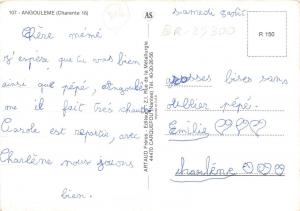 107 - ANGOULEME (Charente 16)
AS
Samedi
R 150
Chère mémé
J'espère que tu vas bien
ainsi que pépé, Angoulê
me il fait très chaud
Carole est repartie, avec
Charlène nous jouons
bien.
ARTAUD Frères - Editeurs, Z.I. Rue de la Métallurgie
44470 CARQUEFOU (Nantes) Tél. 40/30-26-56
grosses bises sans
oublier pépé.
Emilie
charlène